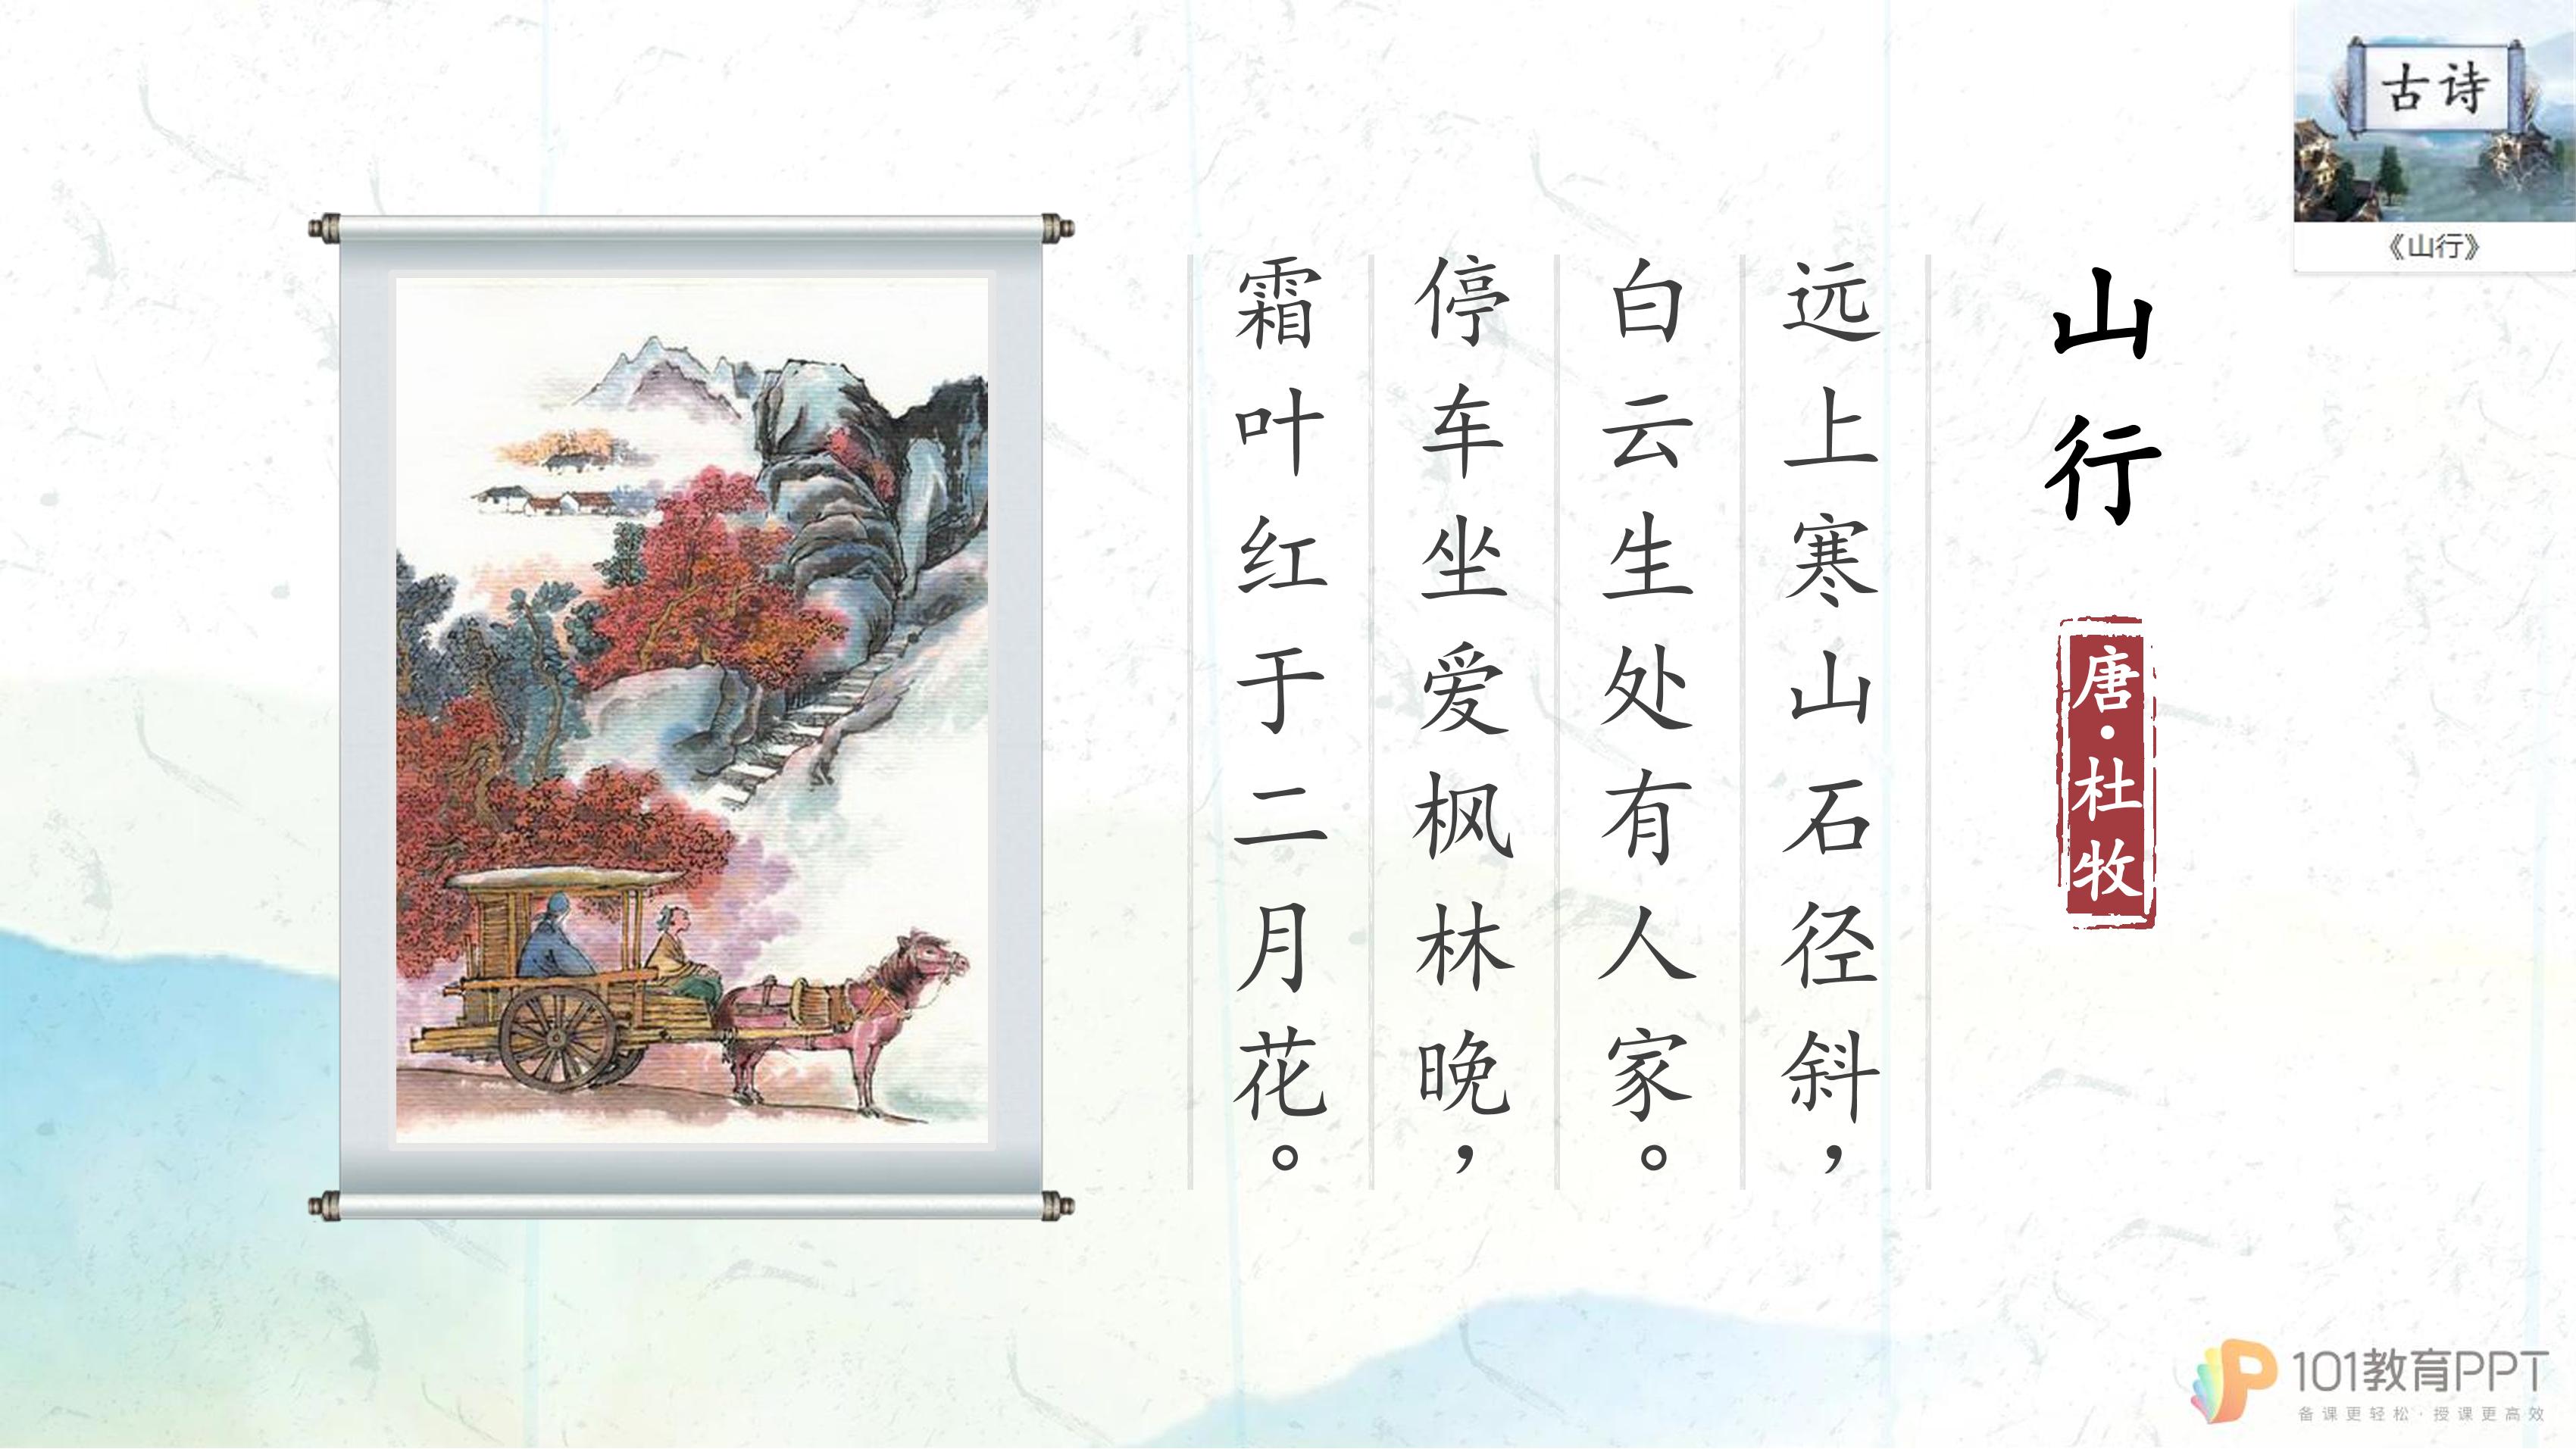 山行
唐·杜牧
远上寒山石径斜，
白云生处有人家。
停车坐爱枫林晚，
霜叶红于二月花。
古诗
《山行》
101教育PPT
备课更轻松·授课更高效